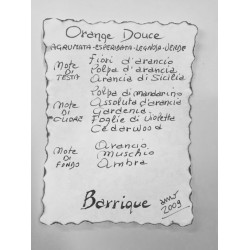 Orange Douce
AGRUMATA-ESPERIDATA-LEGNOSA-VERDE
Note DI TESTA
Fiori d'arancio
Polpa d'arancia
Arancia di Sicilia
Note DI CUORE
Polpa di mandarino
Assoluta d'arancia
Gardenia
Foglie di violetta
Cedarwood
Note DI FONDO
Arancio
Muschio
Ambra
Barrique
2009